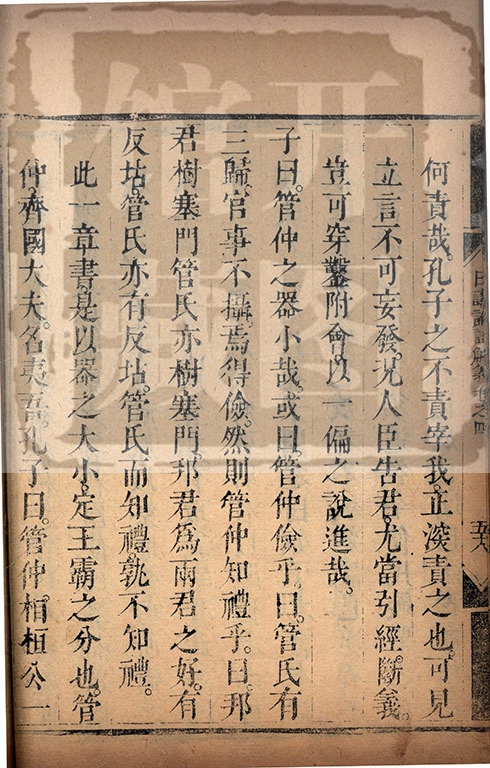 日講四書解義卷之四
五
何責哉。孔子之不責宰我。正深責之也。可見
立言不可妄發。況人臣告君。尤當引經斷義。
豈可穿鑿附會。以一偏之說進哉。
子曰。管仲之器小哉。或曰。管仲儉乎。曰。管氏有
三歸。官事不攝。焉得儉。然則管仲知禮乎。曰。邦
君樹塞門。管氏亦樹塞門。邦君為兩君之好。有
反坫。管氏亦有反坫。管氏而知禮。孰不知禮。
此一章書。是以器之大小。定王霸之分也。管
仲。齊國大夫。名夷吾。孔子曰。管仲相桓公一